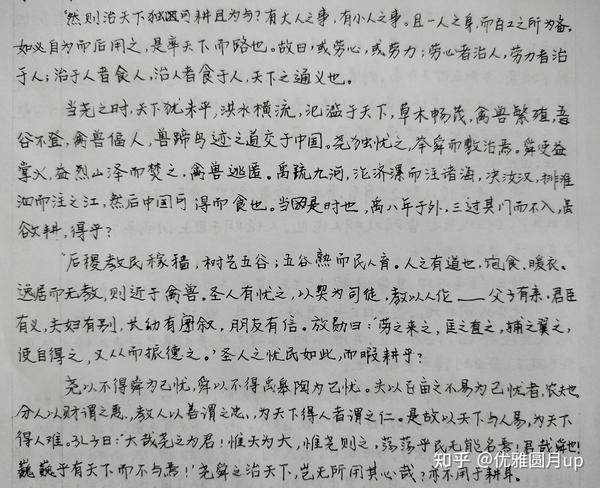 “然则治天下独可耕且为与？有大人之事，有小人之事。且一人之身，而百工之所为备。
如必自为而后用之，是率天下而路也。故曰，或劳心，或劳力；劳心者治人，劳力者治
于人；治于人者食人，治人者食于人，天下之通义也。
当尧之时，天下犹未平，洪水横流，氾滥于天下，草木畅茂，禽兽繁殖，五
谷不登，禽兽偪人，兽蹄鸟迹之道交于中国。尧独忧之，举舜而敷治焉。舜使益
掌火，益烈山泽而焚之，禽兽逃匿。禹疏九河，瀹济漯而注诸海，决汝汉，排淮
泗而注之江，然后中国可得而食也。当是时也，禹八年于外，三过其门而不入，虽
欲耕，得乎？
“后稷教民稼穑，树艺五谷；五谷熟而民人育。人之有道也，饱食、暖衣、
逸居而无教，则近于禽兽。圣人有忧之，以契为司徒，教以人伦——父子有亲，君臣
有义，夫妇有别，长幼有叙，朋友有信。放勋曰：‘劳之来之，匡之直之，辅之翼之，
使自得之，又从而振德之。’圣人之忧民如此，而暇耕乎？
尧以不得舜为己忧，舜以不得禹皋陶为己忧。夫以百亩之不易为己忧者，农夫也。
分人以财谓之惠，教人以善谓之忠，为天下得人者谓之仁。是故以天下与人易，为天下
得人难。孔子曰：‘大哉尧之为君！惟天为大，惟尧则之，荡荡乎民无能名焉！君哉舜也！
巍巍乎有天下而不与焉！’尧舜之治天下，岂无所用其心哉？亦不用于耕耳。
知乎 @优雅圆月up